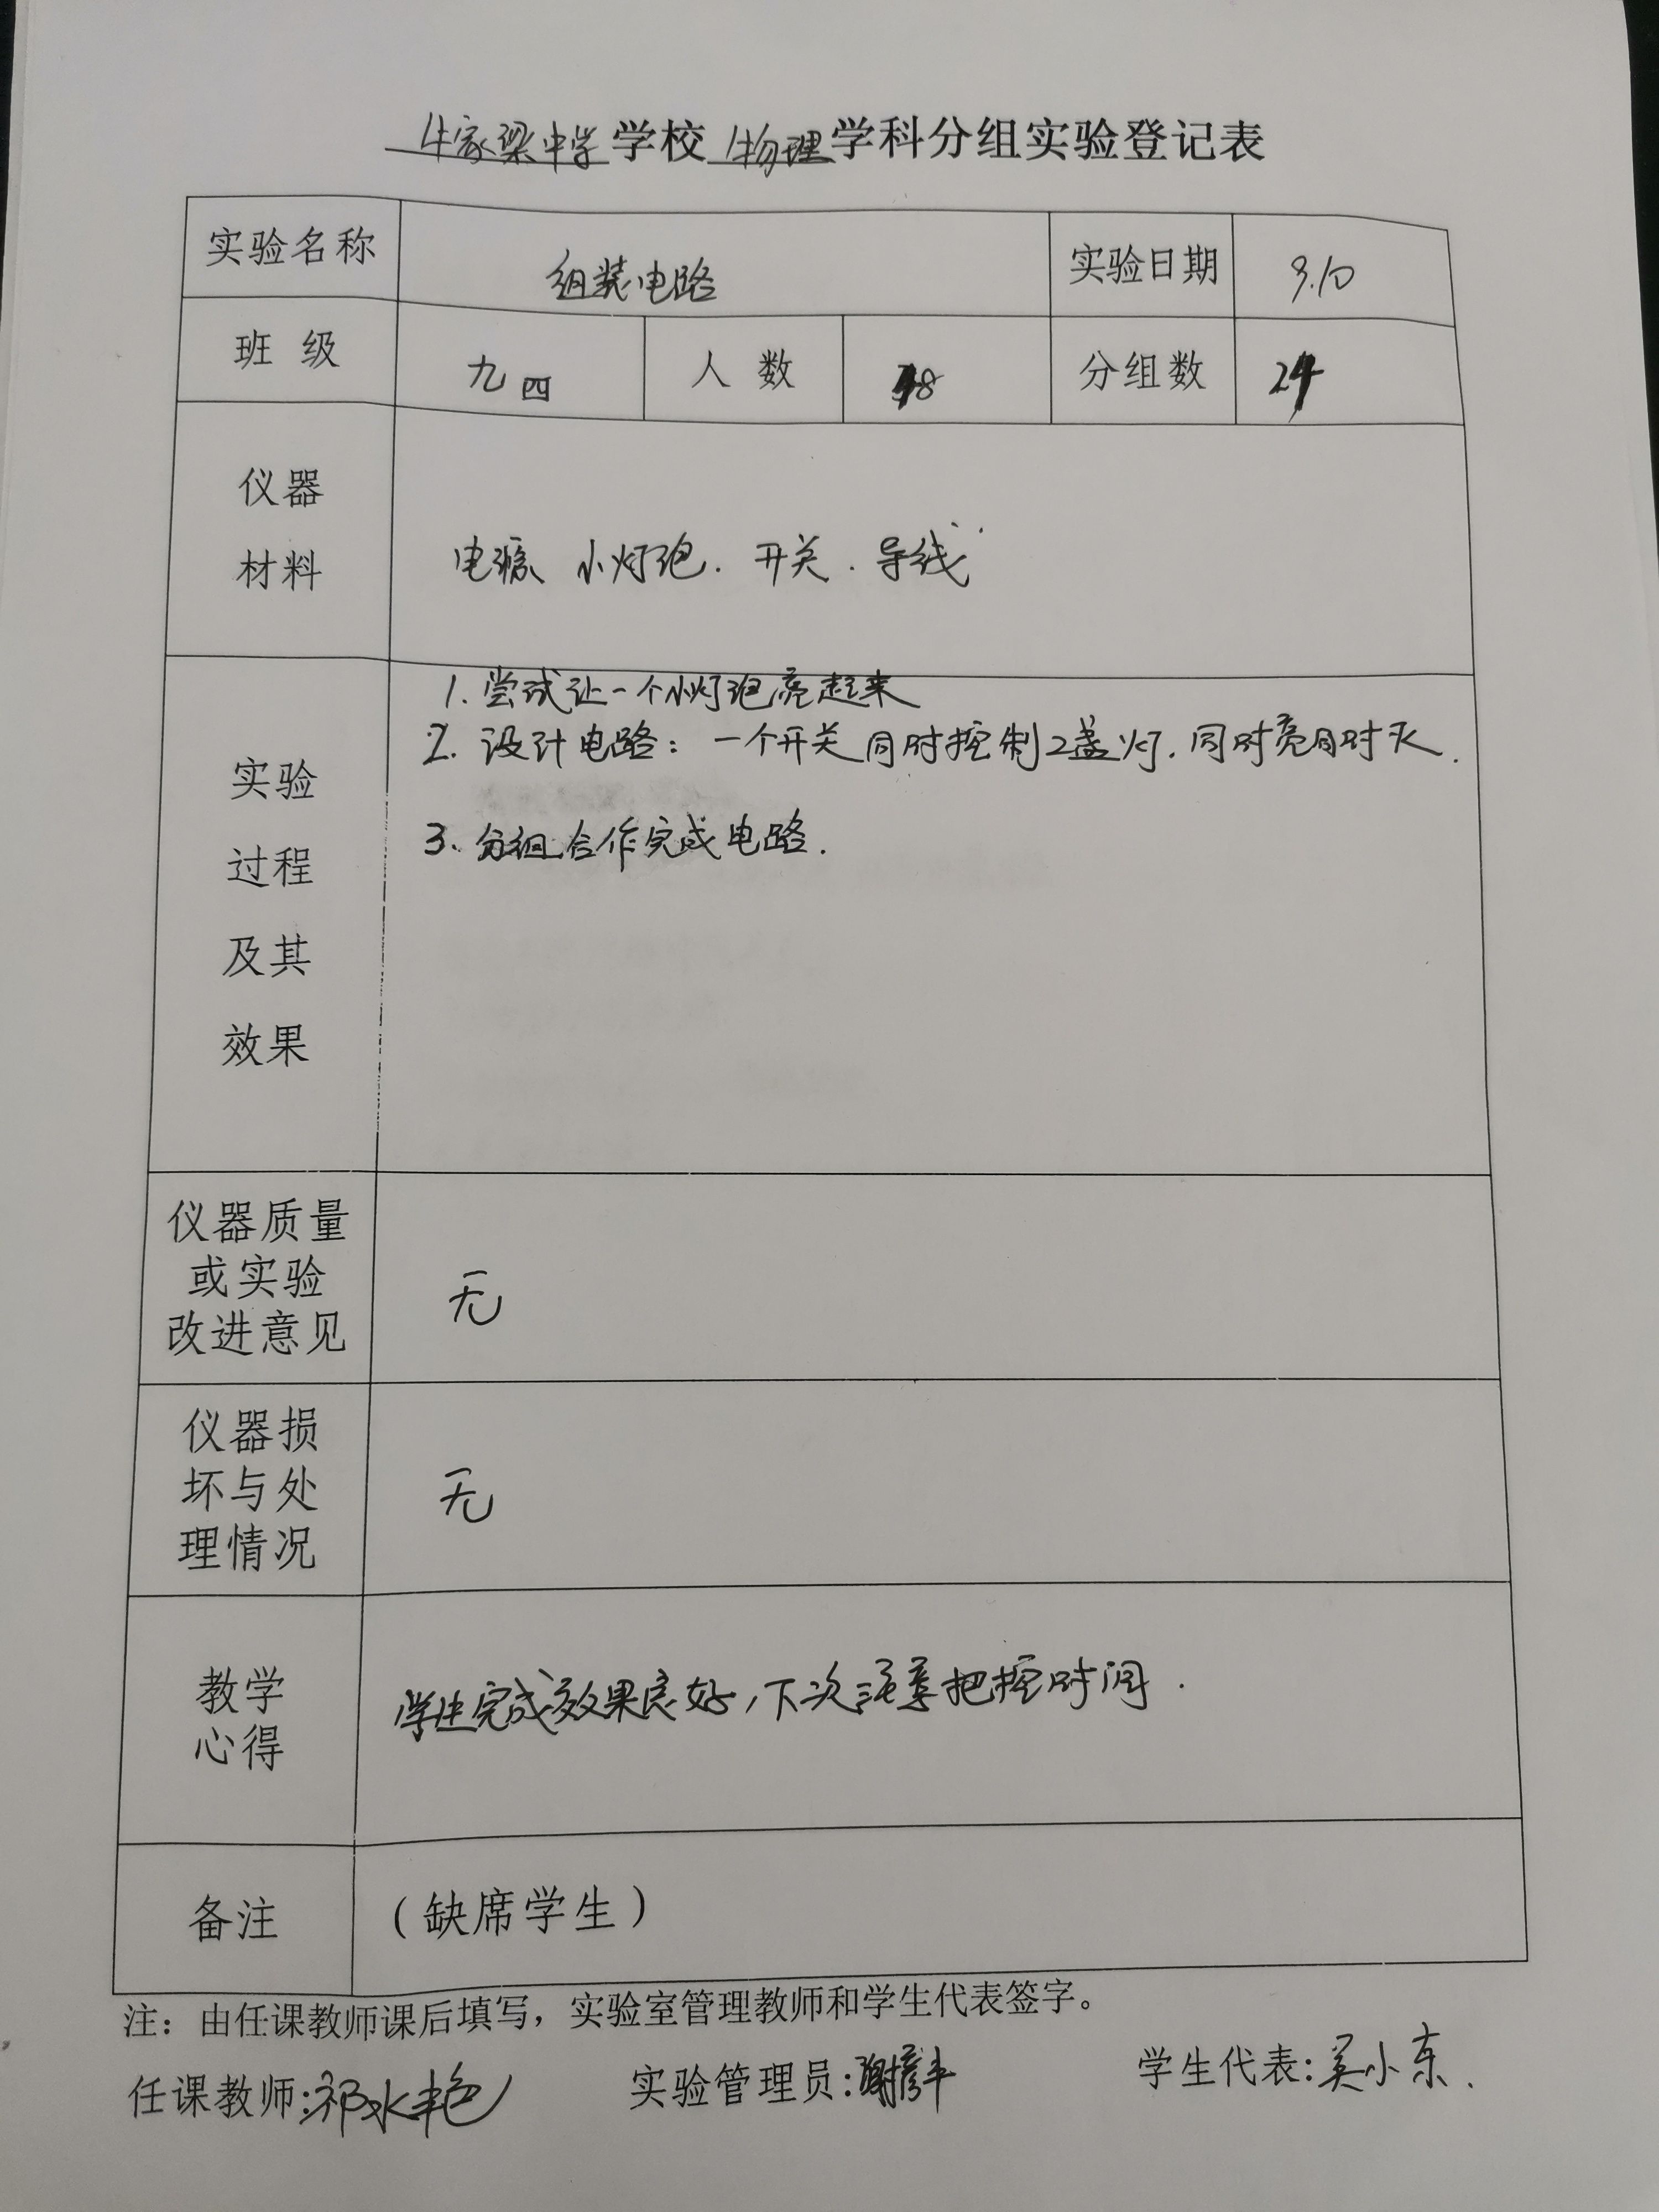 牛家梁中学学校物理学科分组实验登记表
实验名称 组装电路 实验日期 9.10
班 级 九四 人 数 48 分组数 24
仪器
材料
电源 小灯泡. 开关. 导线
实验
过程
及其
效果
1. 尝试让一个小灯泡亮起来
2. 设计电路: 一个开关同时控制2盏灯. 同时亮同时灭.
3. 分组合作完成电路.
仪器质量
或实验
改进意见
无
仪器损
坏与处
理情况
无
教学
心得
学生完成效果良好,下次注意把控时间.
备注 (缺席学生)
注:由任课教师课后填写,实验室管理教师和学生代表签字。
任课教师:祁水艳 实验管理员: 学生代表:吴小东.